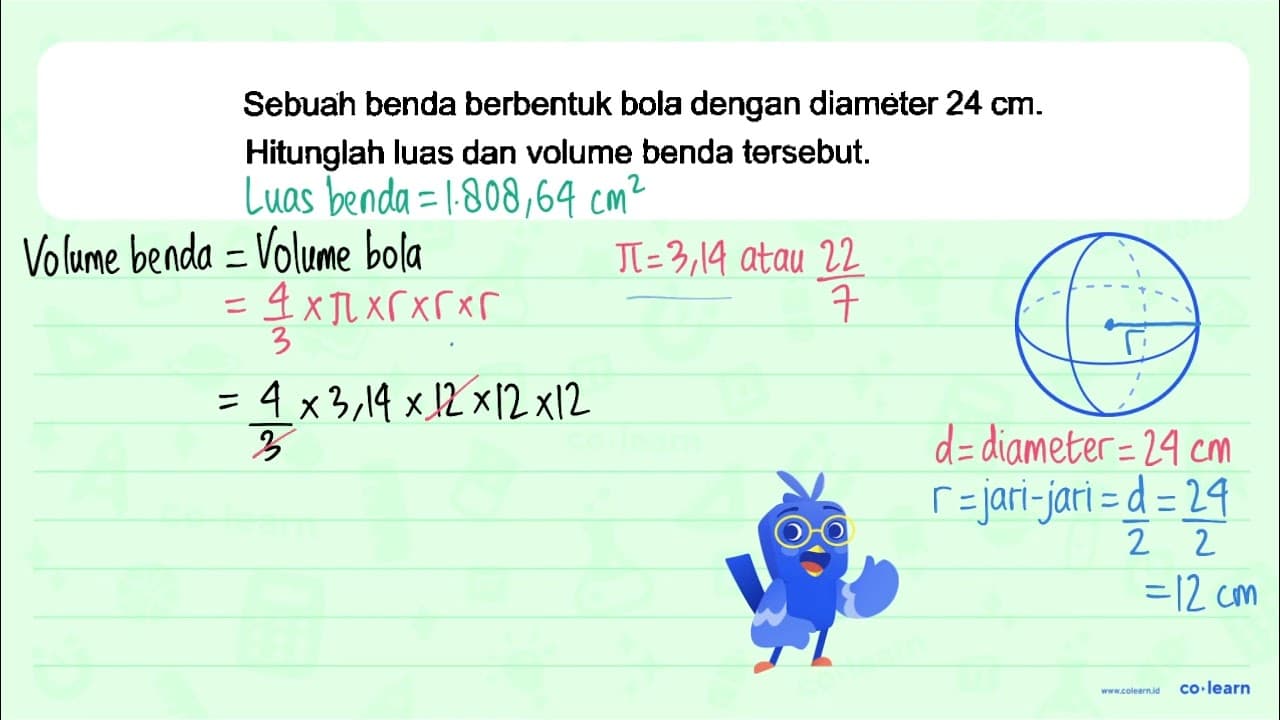 Sebuah benda berbentuk bola dengan diameter 24 cm.
Hitunglah luas dan volume benda tersebut.
Luas benda = 1.808,64 cm²
Volume benda = Volume bola
π = 3,14 atau 22/7
= 4/3 × π × r × r × r
= 4/3 × 3,14 × 12 × 12 × 12
r
d = diameter = 24 cm
r = jari-jari = d/2 = 24/2
= 12 cm
www.colearn.id
co·learn